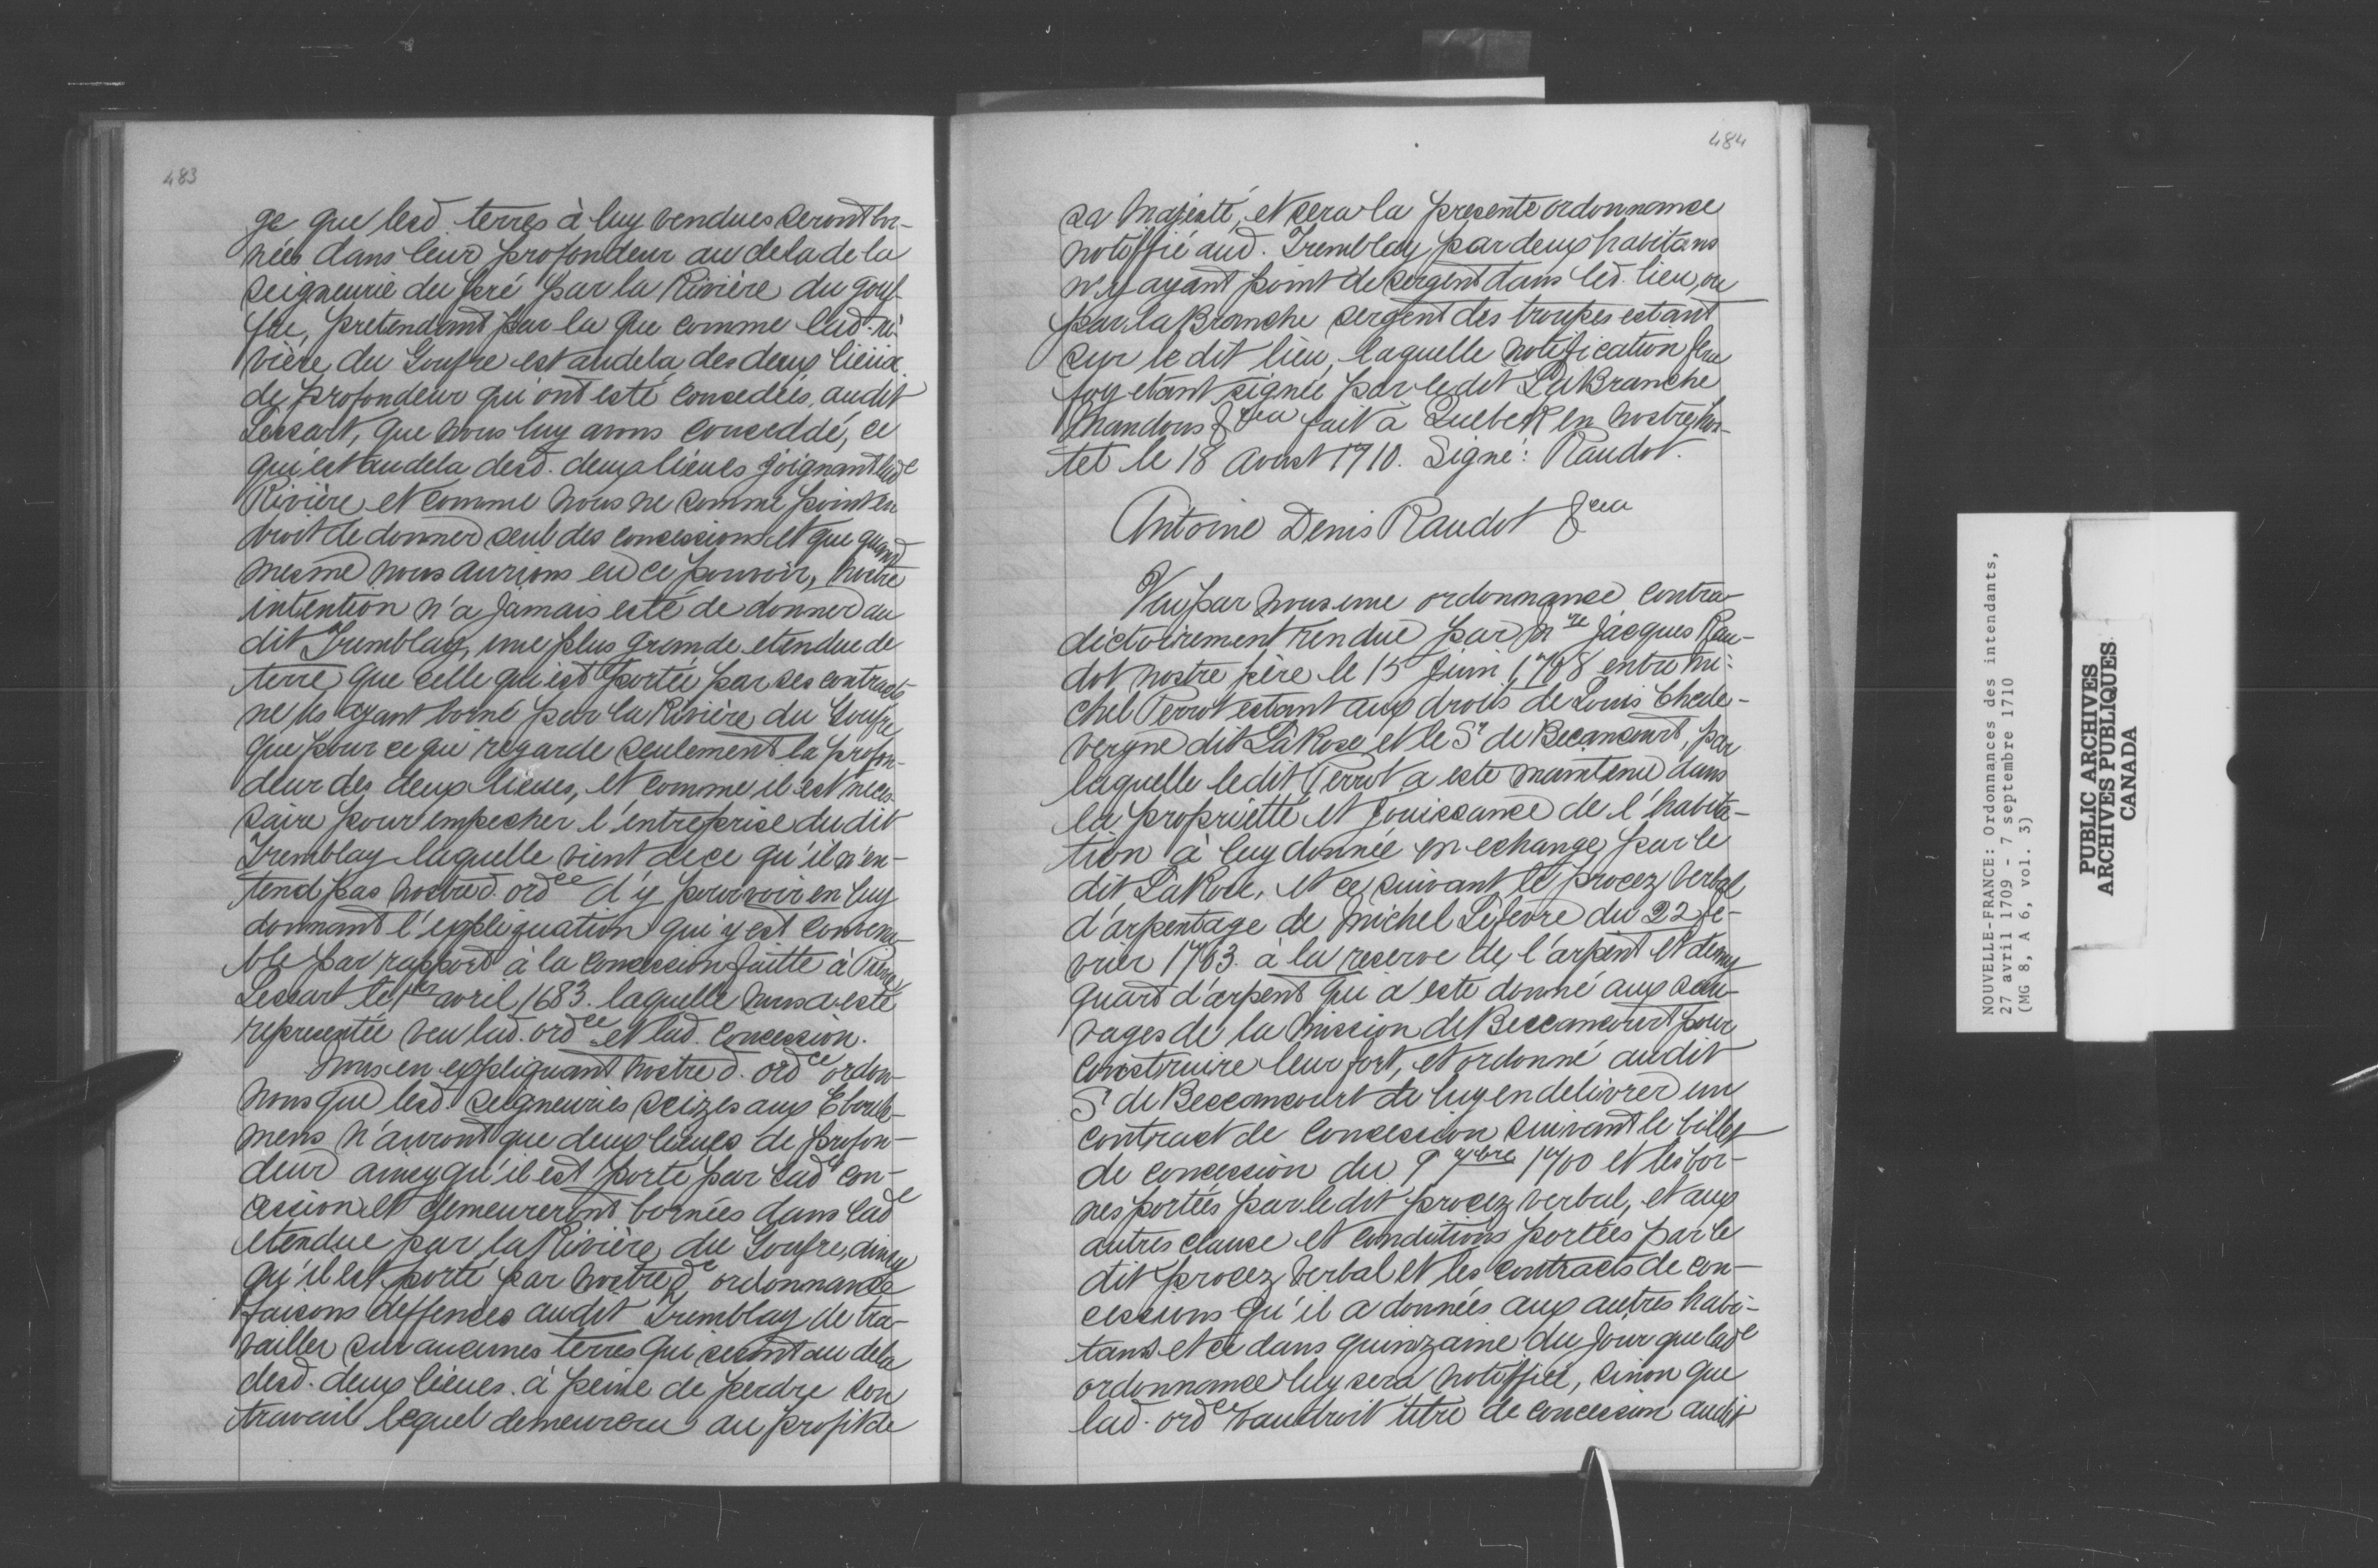 483
ge que lesd. terres à luy vendues seront bor-
nées dans leur profondeur au dela de la
seigneurie du Pré par la Rivière du gouf-
fre, pretendant par la que comme lad. ri-
vière du Goufre est audela des deux lieux
de profondeur qui ont esté concedées audit
Lessart, que nous luy avons conceddé, ce
qui est au dela desd. deux lieues joignant lade
Rivière et comme nous ne somme point en
droit de donner seul des concessions et que quand
mesme nous aurions eu ce pouvoir, nostre
intention n'a jamais esté de donner au
dit Tremblay, une plus grande etendue de
terre que celle qui est portée par ses contracts
ne les ayant borné par la Rivière du Goufre
que pour ce qui regarde seulement la profon-
deur des deux lieues, et comme il est neces-
saire pour empecher l'entreprise dudit
Tremblay laquelle vient de ce qu'il n'en-
tend pas nostred. ordce d'y pourvoir en luy
donnant l'explication qui y est convena-
ble par rapport à la concession faitte à Pierre
Lessart le 1er avril 1683. laquelle nous a esté
representée veu lad. ordce et lad. concession.
Nous en expliquant nostre d. ordce ordon-
nons que lesd. seigneuries seizes aux Eboule-
mens n'auront que deux lieues de profon-
deur ainsy qu'il est porté par lade con-
cession et demeureront bornées dans lade
etendue par la Rivière du Goufre, ainsy
qu'il est porté par nostre de ordonnance
faisons deffences audit Tremblay de tra-
vailler sur aucunes terres qui seront au dela
desd. deux lieues à peine de perdre son
travail lequel demeurera au profit de
484
sa Majesté, et sera la presente ordonnance
notiffié aud. Tremblay par deux habitans
n'y ayant point de sergent dans led. lieu, ou
par la Branche sergent des troupes estant
sur le dit lieu, laquelle notification fera
foy etant signée par ledit La Branche
Mandons &cea fait à Quebek en nostre hos-
tel le 18 Aoust 1710. Signé: Raudot.
Antoine Denis Raudot &cea
Veu par nous une ordonnance contra-
dictoirement rendue par Mre Jacques Rau-
dot nostre père le 15 Juin 1708 entre Mi-
chel Perrot estant aux droits de Louis Chede-
vergne dit La Rose et le Sr de Becancourt, par
laquelle ledit Perrot a este maintenu dans
la propriette et jouissance de l'habita-
tion à luy donnée en echange par le
dit La Rose, et ce suivant le procez verbal
d'arpentage de Michel Lefevre du 22 fe-
vrier 1703. à la reserve de l'arpent et demy
quart d'arpent qui a este donné aux sau-
vages de la mission de Beccancourt pour
construire leur fort, et ordonné audit
Sr de Beccancourt de luy en delivrer un
contract de concession suivant le billet
de concession du 9 9bre 1700 et les bor-
nes portées par ledit procez verbal, et aux
autres clause et conditions portées par le
dit procez verbal et les contracts de con-
cessions qu'il a données aux autres habi-
tans et ce dans quinzaine du jour que lade
ordonnance luy sera notiffiée, sinon que
lad. ordce vaudroit titre de concession audit
NOUVELLE-FRANCE: Ordonnances des intendants,
27 avril 1709 - 7 septembre 1710
(MG 8, A 6, vol. 3)
PUBLIC ARCHIVES
ARCHIVES PUBLIQUES
CANADA